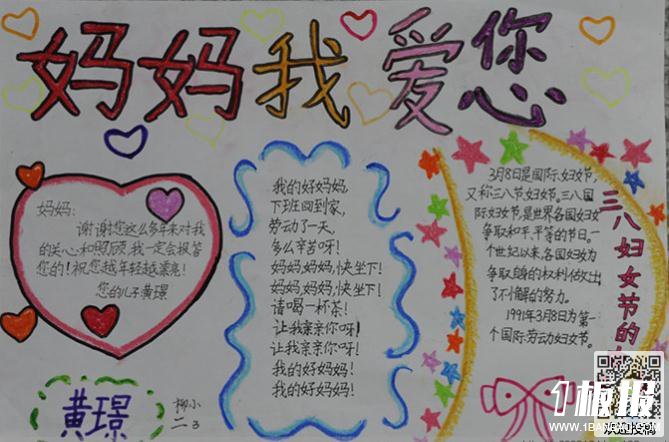 妈妈我爱您
妈妈:
谢谢您这么多年来对我
的关心和照顾,我一定会报答
您的!祝您越年轻越漂亮!
您的儿子黄璟
黄璟
柳小
二3
我的好妈妈,
下班回到家,
劳动了一天,
多么辛苦呀!
妈妈,妈妈,快坐下!
妈妈,妈妈,快坐下!
请喝一杯茶!
让我亲亲你呀!
让我亲亲你呀!
我的好妈妈!
我的好妈妈!
3月8日是国际妇女节,
又称三八节,妇女节。三八国
际妇女节,是世界各国妇女
争取和平、平等的节日。一
个世纪以来,各国妇女为
争取自身的权利做出
了不懈的努力。
1991年3月8日为第一
个国际劳动妇女节。
三八妇女节的
1板报
WWW.1BANBAO.COM
欢迎投稿